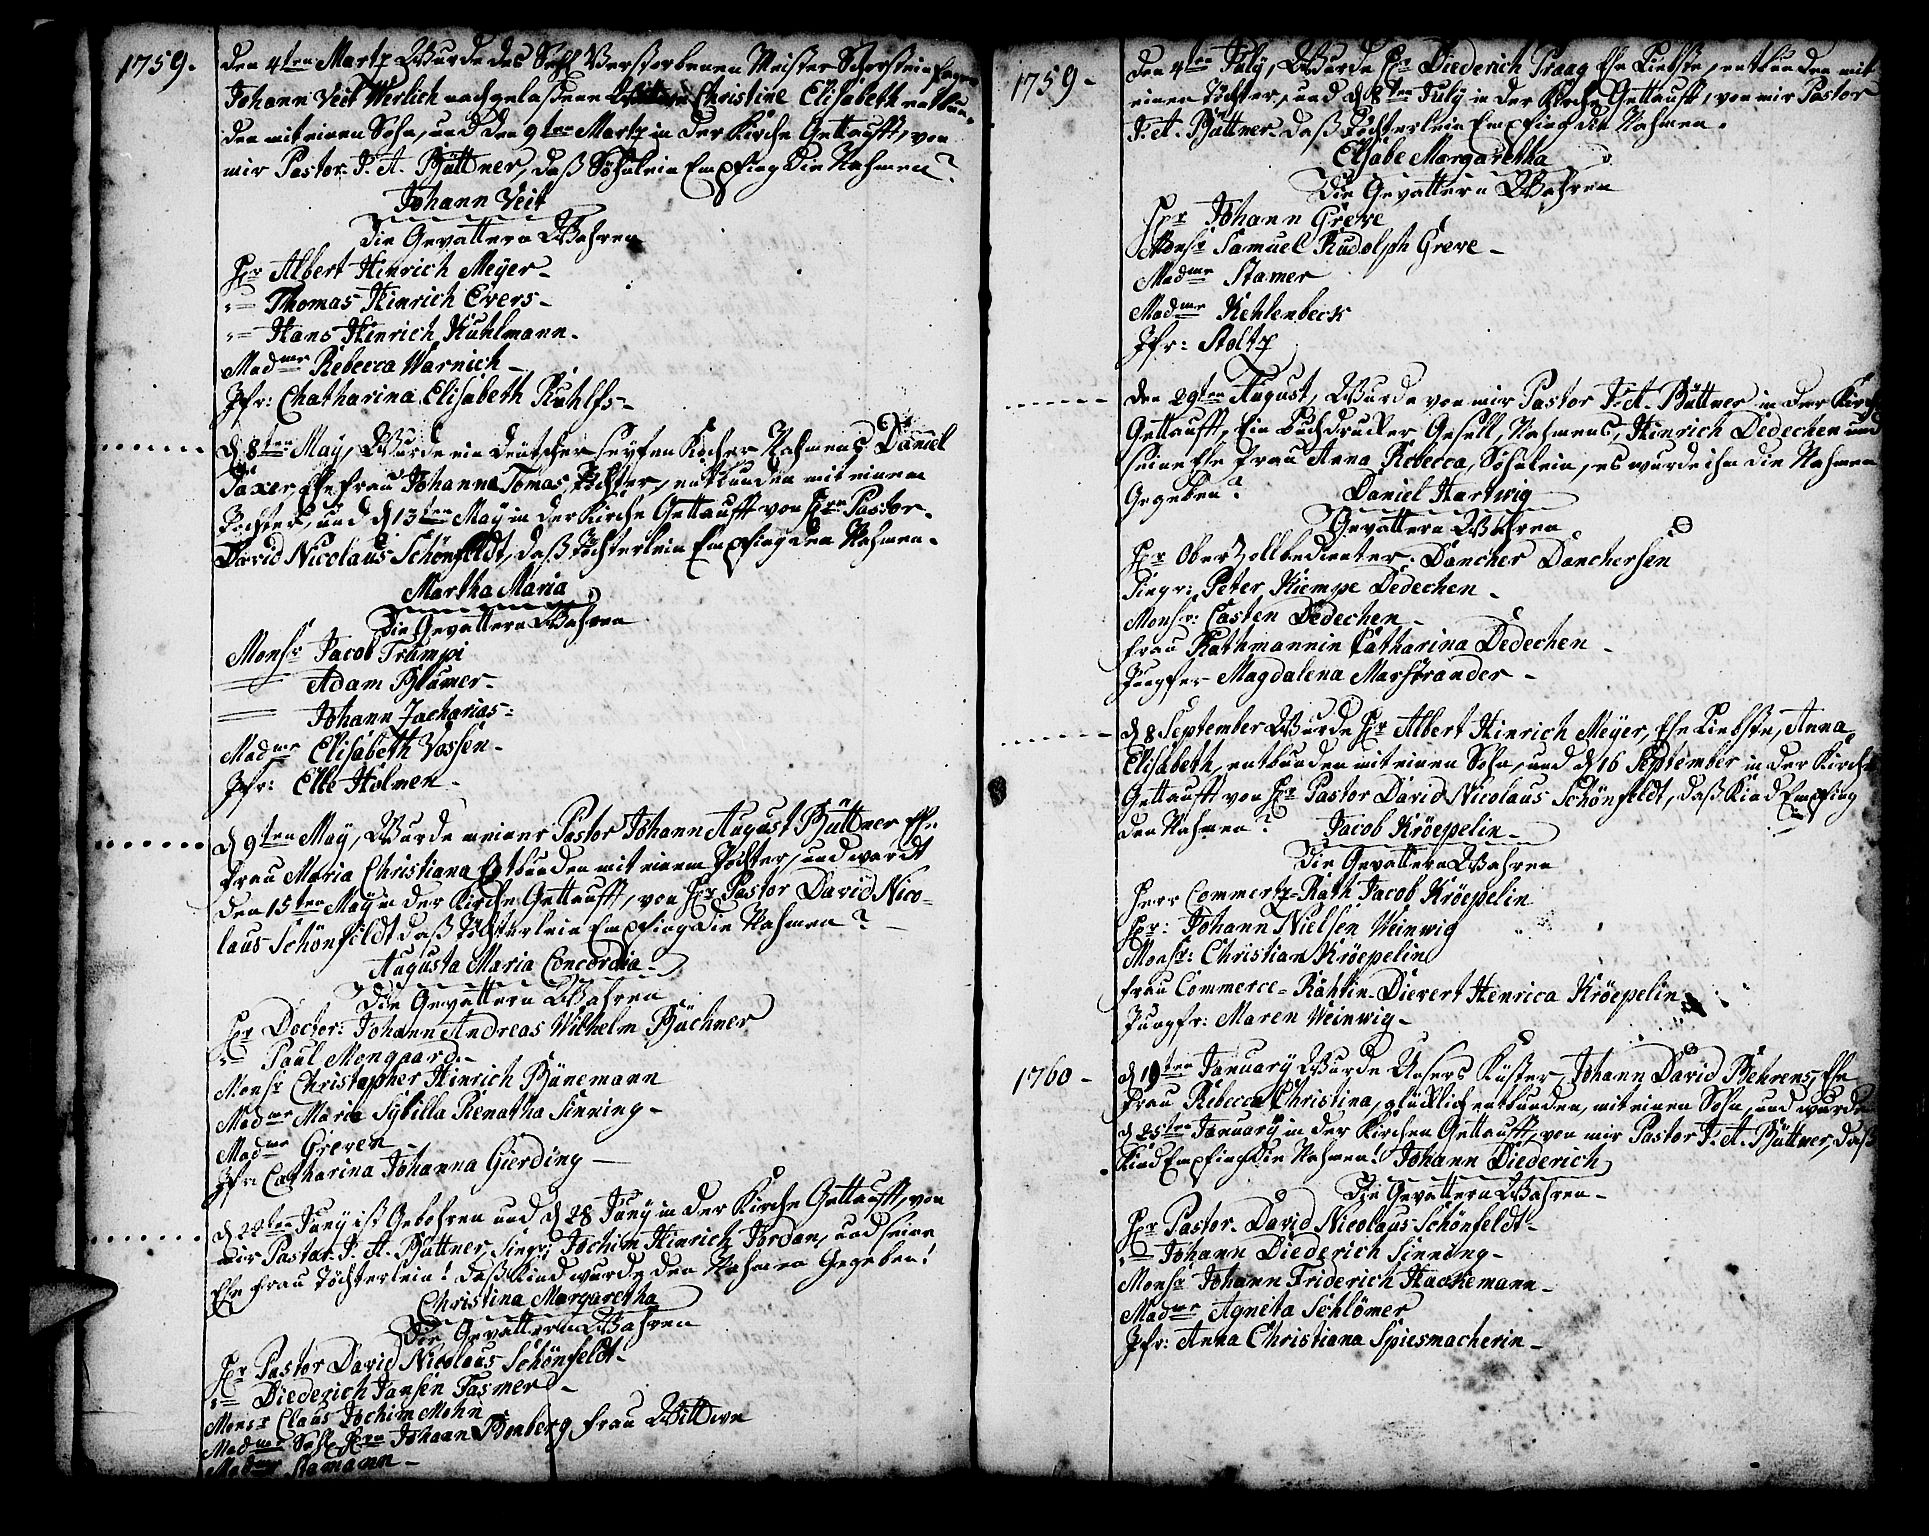 1759.
den 4ten Martz Wurde des Sehl Verstorbenen Meister Schorstein feger
Johann Veit Werlich nachgelaßene Wittwe Christine Elisabeth entbun-
den mit einen Sohn, und den 9ten Martz in der Kirche Gettaufft, von
mir Pastor J. A. Büttner, daß Söhnlein Empfing die Nahmen?
Johann Veit
Die Gevattern Wahren
Hr Albert Hinrich Meÿer-
" Thomas Hinrich Evers-
" Hans Hinrich Kuhlmann.
Madme Rebecca Warnich-
Jfr: Chatharina Elisabeth Ruhlfs-
d 8ten Maÿ, Wurde ein deutscher seyfen Kocher Nahmens Daniel
Taxer, Ehe frau Johanna Tomas Töchter, entbunden mit einem
Tochter, und d 13ten Maÿ in der Kirche Gettaufft von Hrn Pastor
David Nicolaus Schönfeldt, daß Töchterlein Empfing den Nahmen.
Martha Maria
Die Gevattern Wahren
Monsr Jacob Trümpi
Adam Blümer-
Johann Zacharias:
Madme Elisabeth Vossen-
Jfr: Elle Holmen-
d 9ten Maÿ, Wurde meiner Pastor Johann August Büttner Eh-
frau Maria Christiana Entbunden mit einem Tochter, und wardt
den 15ten Maÿ in der Kirche Gettaufft, von Hr Pastor David Nico-
laus Schönfeldt daß Töchterlein Empfing die Nahmen?
Augusta Maria Concordia-
Die Gevattern Wahren
Hr Doctor: Johann Andreas Wilhelm Büchner
" Paul Mongaard-
Monsr Christopher Hinrich Bünemann
Madme Maria Sybilla Renatha Sinning-
Madme Greven-
Jfr: Catharina Johanna Gierding-
d 22ten Junÿ ist Gebohren und d 28 Junÿ in der Kirche Gettaufft, von
mir Pastor J. A. Büttner, Sinr: Jochim Hinrich Jordan, und seine
Ehe frau Töchterlein! daß Kind wurde den Nahmen Gegeben!
Christina Margaretha
Die Gevattern Wahren
Hr Pastor David Nicolaus Schönfeldt-
" Diederich Jansen Fasmer-
Monsr Claus Jochim Mohn
Madme Sehl Hrn Johann Bonberg frau Wittwe
Madme Stamann-
1759-
den 4ten Julÿ, Wurde Hr Diederich Praag Ehe Liebste, entbunden mit
einen Töchter, und d 8ten Julÿ in der Kirche Gettaufft, von mir Pastor
J. A. Büttner. daß Töchterlein Empfing die Nahmen.
Elsabe Margaretha
Die Gevattern Wahren
Hr Johann Greve
Monsr Samuel Rudolph Greve-
Madme Stamer
Madme Kehlenbeck
Jfr: Stoltz
den 29ten August, Wurde von mir Pastor J. A. Büttner in der Kirche
Gettaufft, Ein Buchdrucker Gesell, Nahmens, Hinrich Dedechen und
seine Ehe frau Anna Rebecca, Söhnlein, es wurde ihn die Nahmen
Gegeben?
Daniel Hartwig
Gevattern Wahren
Hr Ober Zollbedienter, Dancher Danchersen
Singr: Peter Kiempe Dedechen-
Monsr: Casten Dedechen-
frau Rathmannin Catharina Dedechen-
Jungfer Magdalena Marstrander-
d 8 September Wurde Hr Albert Hinrich Meÿer, Ehe Liebste, Anna
Elisabeth, entbunden mit einen Sohn, und d 16 September in der Kirche
Gettaufft von Hr Pastor David Nicolaus Schönfeldt, daß Kind Empfing
den Nahmen?
Jacob Kröepelin-
Die Gevattern Wahren
Herr Commertz-Rath Jacob Kröepelin
Hr: Johann Nielsen Weinwig
Monsr: Christian Kröepelin
frau Commerce-Rähtin-Dievert Henrica Kröepelin
Jungfr: Maren Weinwig-
1760-
d 19ten Januarÿ Wurde Unsers Küster, Johann David Behrens, Ehe
frau Rebecca Christina, glücklich entbunden, mit einen Sohn, und wurde
d 25ten Januarÿ in der Kirchen Gettaufft, von mir Pastor J. A. Büttner, daß
Kind Empfing die Nahmen! Johann Diederich
Die Gevattern Wahren-
Hr Pastor David Nicolaus Schönfeldt-
" Johann Diederich Sinning-
Monsr Johann Friderich Hackemann-
Madme Agneta Schlömer
Jfr: Anna Christiana Spiesmacherin-